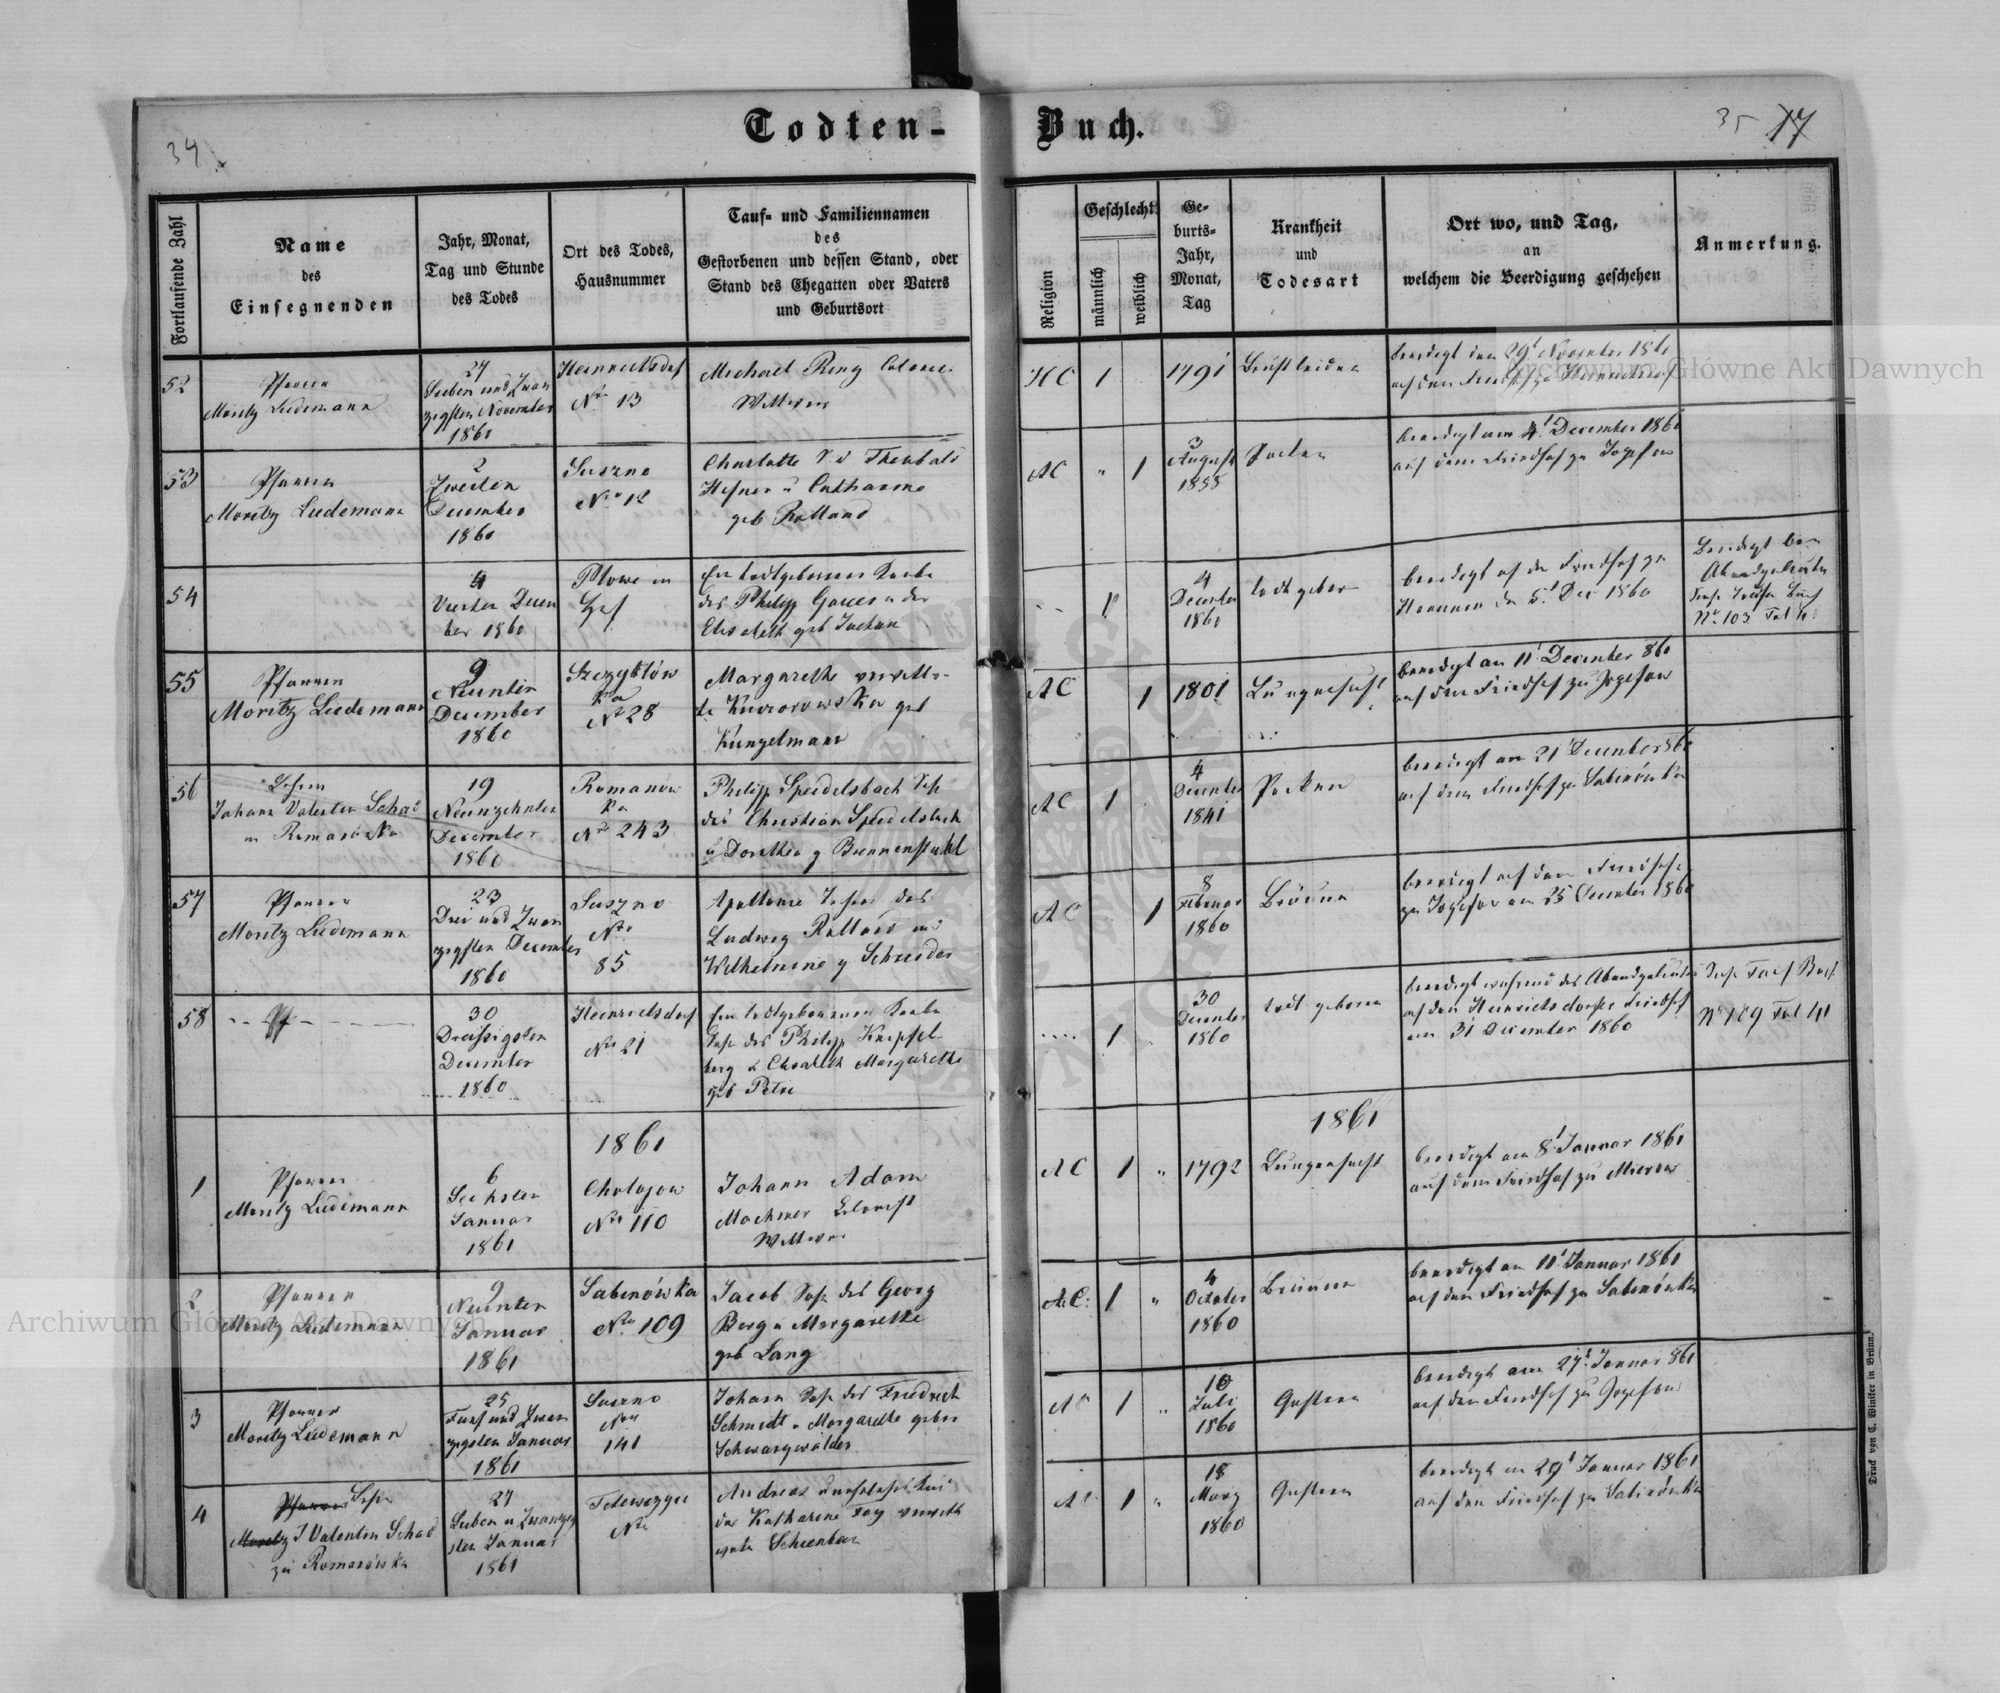 Todten-
Buch.
34
35 17
Fortlaufende Zahl
Name
des
Einsegnenden
Jahr, Monat,
Tag und Stunde
des Todes
Ort des Todes,
Hausnummer
Tauf- und Familiennamen
des
Gestorbenen und dessen Stand, oder
Stand des Ehegatten oder Vaters
und Geburtsort
Religion
Geschlecht
männlich
weiblich
Ge-
burts-
Jahr,
Monat,
Tag
Krankheit
und
Todesart
Ort wo, und Tag,
an
welchem die Beerdigung geschehen
Anmerkung.
52
Pfarrer
Moritz Ludemann
27
Sieben und Zwan
zigsten November
1860
Heinrichsdorf
Nro 13
Michael Ring
Wittwer
HC 1
1791
beerdigt den 29t November
53
Pfarrer
Moritz Ludemann
2
Zweiten
December
1860
Suszno
Nro 12
Charlotte T d Theobald
Hefner u Catharine
geb Rolland
AC " 1
3
August
1855
Pocken
beerdigt am 4t December 1860
auf dem Friedhof zu Jozefow
54
4
Vierter Decem
ber 1860
Ein todtgeborener Knabe
des Philipp Gauer u der
Elisabeth geb
4
December
1860
todtgeboren
beerdigt auf den Friedhof zu
den 5t Dec 1860
Beerdigt bei
Abendgeläute
No 103 Fol
55
Pfarrer
Moritz Ludemann
9
Neunter
December
1860
ka
No 28
Margarethe verwitt-
te geb
Künzelmann
AC 1
1801
Lungensucht
beerdigt am 11t December 860
auf den Friedhof zu Jozefow
56
Johann Valentin Schad
in Romanówka
19
Neunzehnter
December
1860
Romanów
ka
Nro 243
Philipp Speidelsbach Sohn
des Christian Speidelsbach
u Dorothea g Brennenstuhl
AC 1
4
December
1841
Pocken
beerdigt am 21t December 860
auf dem Friedhof zu Sabinówka
57
Pfarrer
Moritz Ludemann
23
Drei und Zwan
zigsten December
1860
Suszno
Nro
85
Apollonie Tochter des
Ludwig Rolland und
Wilhelmine g Schneider
AC 1
8
Februar
1860
Bräune
beerdigt auf dem Friedhofe
zu Jozefow am 25 December 1860
58
30
Dreissigsten
December
1860
Heinrichsdorf
Nro 21
Ein todtgeborener Knabe
Sohn des Philipp Knipfel-
berg u Elisabeth Margarethe
geb Petri
1
30
December
1860
todt geboren
beerdigt während des Abendgeläutes
auf den Heinrichsdorfer Friedhof
am 31 December 1860
No 109 Fol 41
1861
1861
1
Pfarrer
Moritz Ludemann
6
Sechster
Januar
1861
Cholojow
Nro 110
Johann Adam
Machmer Colonist
Wittwer
AC 1 " 1792
Lungensucht
beerdigt am 8t Januar 1861
auf dem Friedhof zu Mierow
2
Pfarrer
Moritz Ludemann
9
Neunter
Januar
1861
Sabinówka
Nro 109
Jacob Sohn des Georg
Berg u Margarethe
geb Lang
A.C: 1 "
4
October
1860
Bräune
beerdigt am 11t Januar 1861
auf den Friedhof zu Sabinówka
3
Pfarrer
Moritz Ludemann
25
Fünf und Zwan
zigsten Januar
1861
Suszno
Nro
141
Johann Sohn des Friedrich
Schmidt u Margarethe gebor
Schwarzwälder
AC 1 "
10
Juli
1860
beerdigt am 27t Januar 861
auf den Friedhof zu Jozefow
4
Pfarrer
Moritz J Valentin Schad
zu Romanówka
27
Sieben u Zwanzig
sten Januar
1861
Nro
Andreas
der Katharine Fay verwitt
AC 1 "
18
März
1860
beerdigt am 29t Januar 1861
auf den Friedhof zu Sabinówka
Druck von C. Winiker in Brünn.
Archiwum Główne Akt Dawnych
Archiwum Główne Akt Dawnych